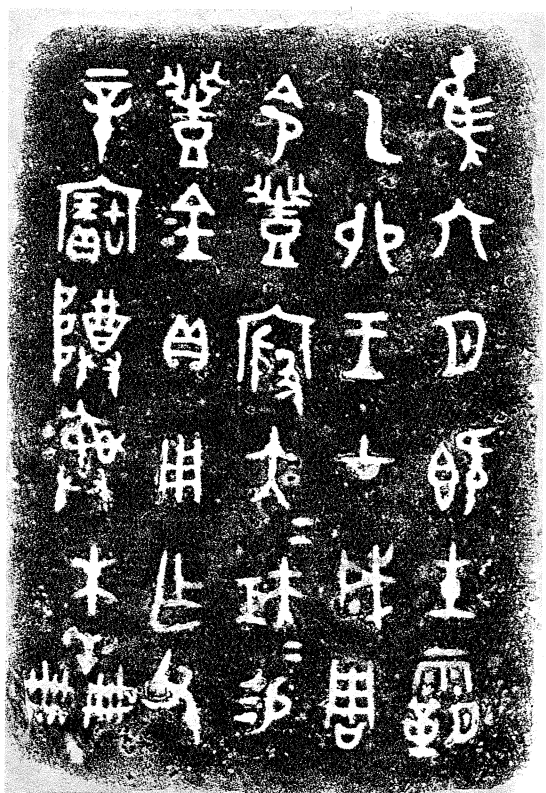 隹六月既生霸
乙卯王才成周
令豐𡪱大=矩=易
豐金貝用乍父
辛寶𬯚彝木羊冊冊